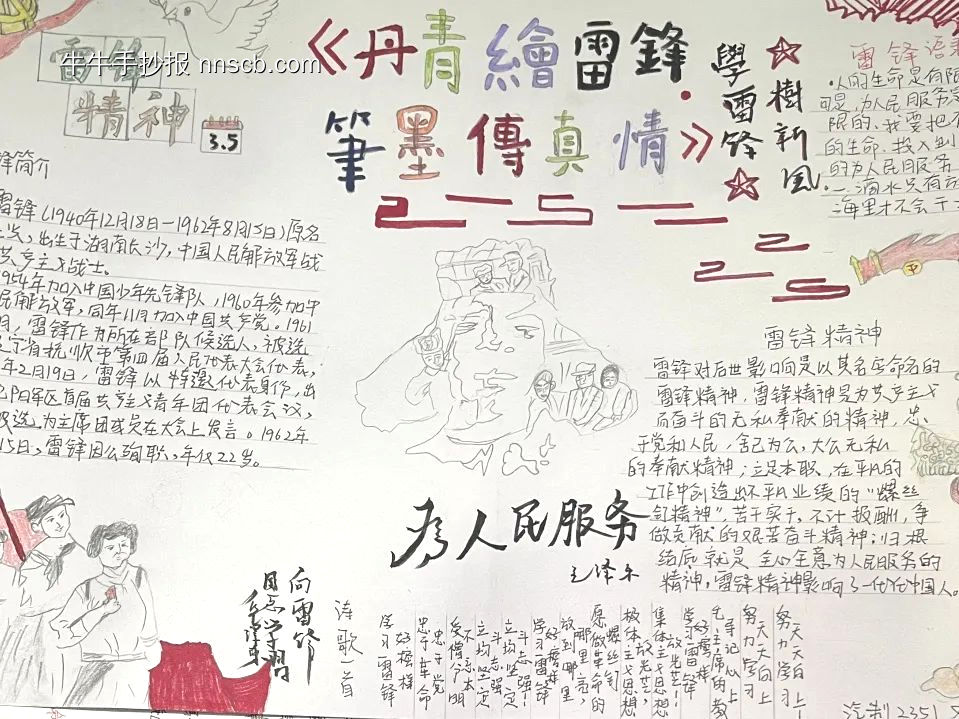 牛牛手抄报 nnscb.com
雷锋
精神
3.5
《丹青繪雷鋒
筆墨傳真情》
學雷鋒
樹新風
雷锋语录
人的生命是有限
可是,为人民服务是
限的,我要把有
的生命,投入到
的为人民服务
一滴水只有放
海里才不会干
锋简介
雷锋(1940年12月18日-1962年8月15日)原名
出生于湖南长沙,中国人民解放军战
共产主义战士。
1954年加入中国少年先锋队,1960年参加中
民解放军,同年11月加入中国共产党。1961
月,雷锋作为所在部队候选人,被选
宁省抚顺市第四届人民代表大会代表,
年2月19日,雷锋以特邀代表身份,出
沈阳军区首届共产主义青年团代表会议,
被选为主席团成员在大会上发言。1962年
15日,雷锋因公殉职,年仅22岁。
雷锋精神
雷锋对后世影响是以其名字命名的
雷锋精神,雷锋精神是为共产主义
而奋斗的无私奉献的精神,忠
于党和人民,舍己为公,大公无私
的奉献精神;立足本职,在平凡的
工作中创造出不平凡业绩的"螺丝
钉精神",苦干实干,不计报酬,争
做贡献的艰苦奋斗精神;归根
结底就是全心全意为人民服务的
精神,雷锋精神影响了一代代中国人。
為人民服务
毛泽东
向雷锋
同志学習
毛泽东
诗歌一首
学习雷锋
好榜样
忠于革命
忠于党
爱憎分明
不忘本
立场坚定
斗志强
立场坚定
斗志强!
学习雷锋
好榜样
放到哪里
哪里亮
愿做革命的
螺丝钉
集体主义思想
放光芒,
集体主义思想
放光芒!
学习雷锋
好榜样
毛主席的教
导记心上
努力学习
天天向上
努力学习
天天向上!
汽制2351